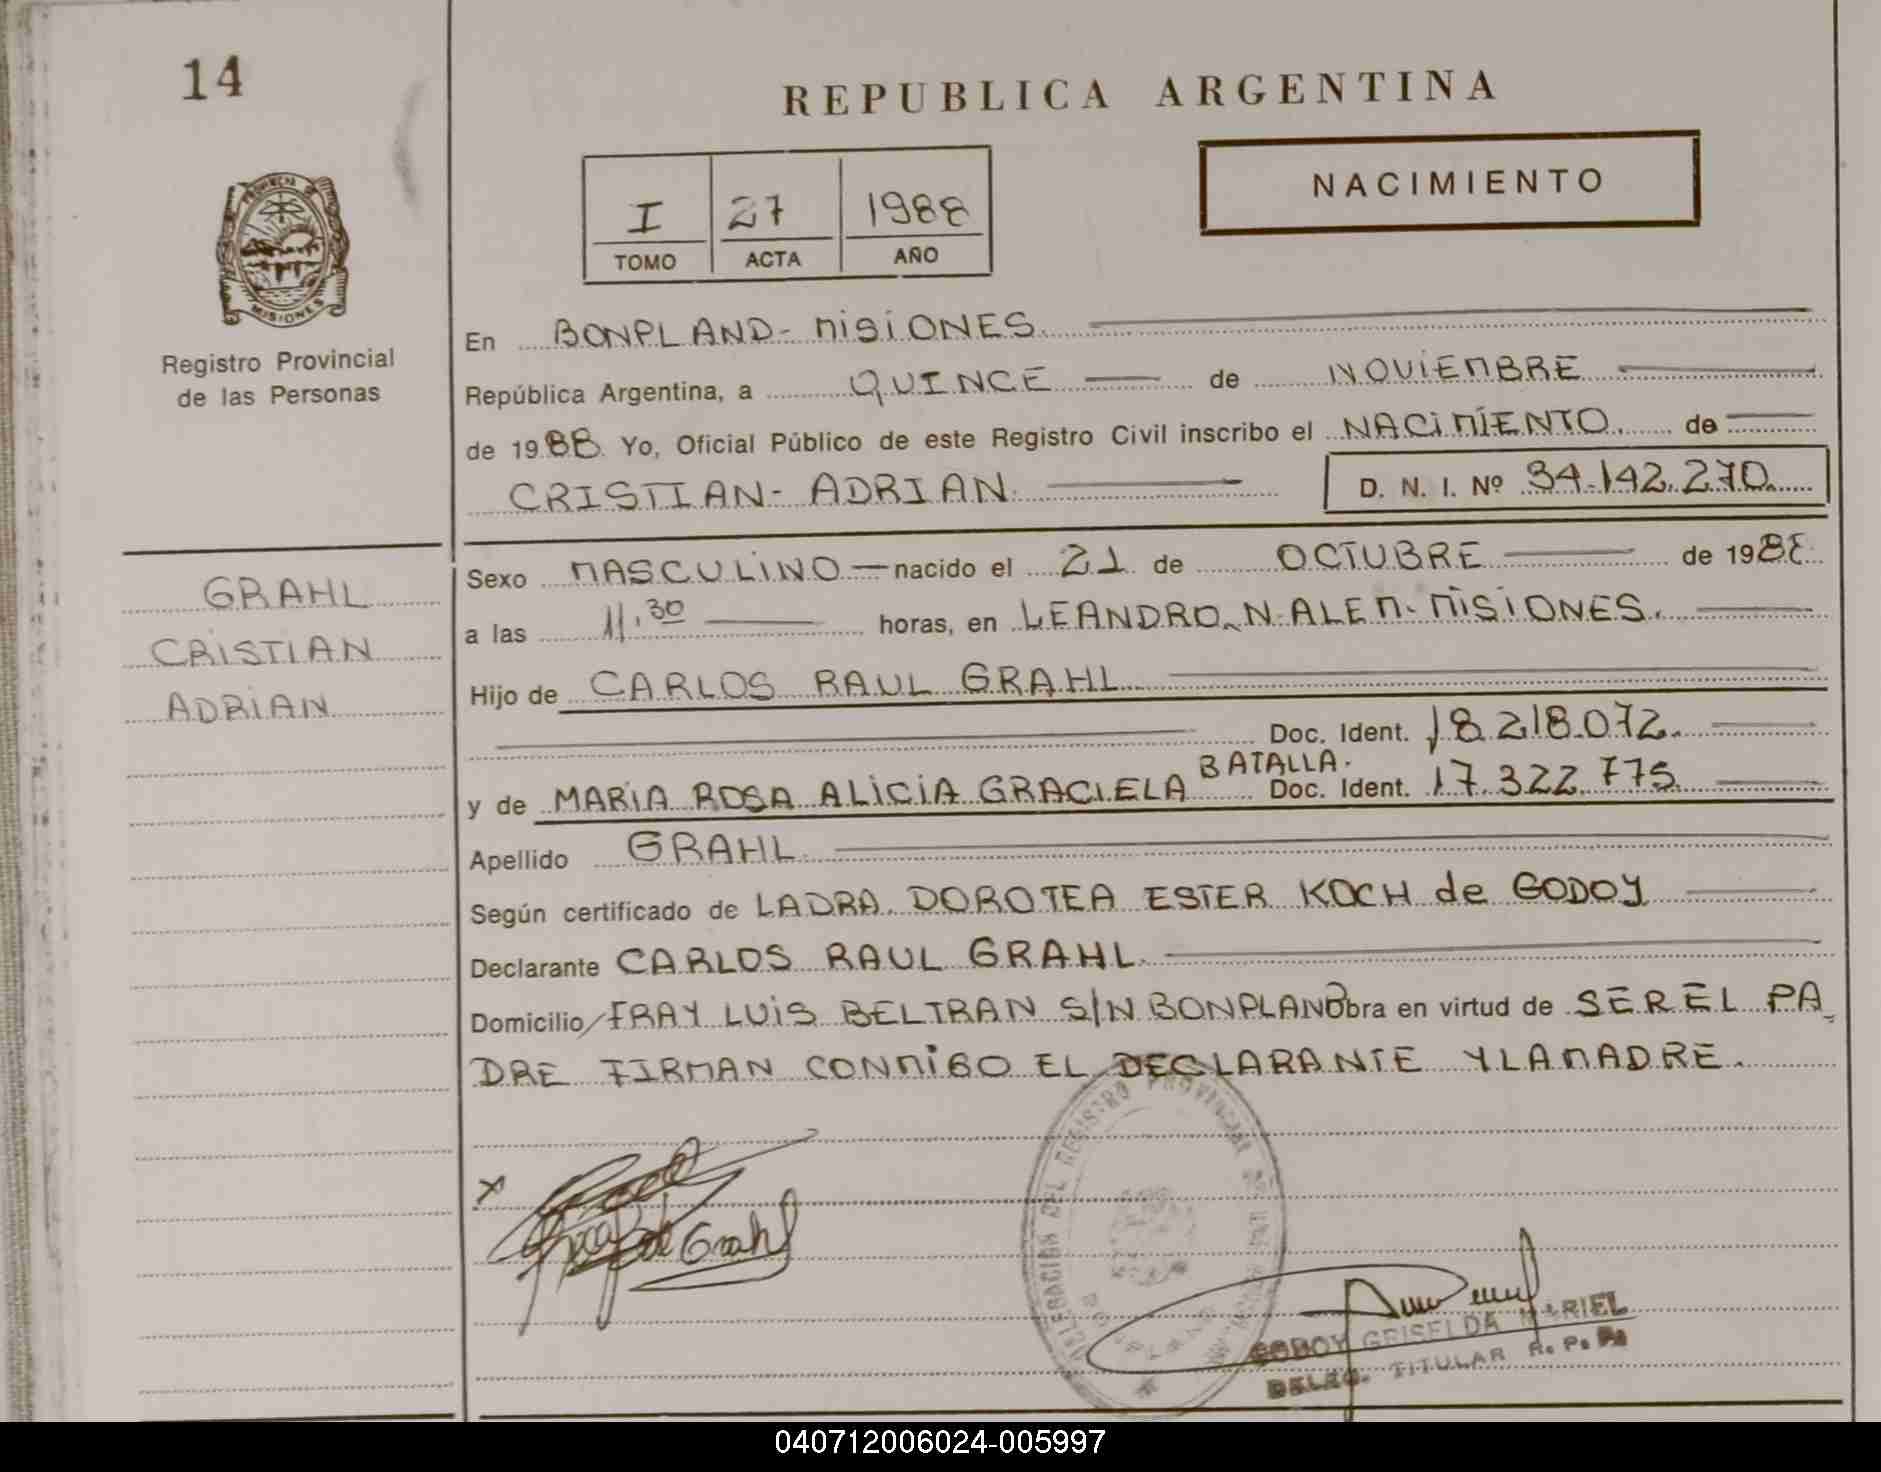 14
REPUBLICA ARGENTINA
NACIMIENTO
I 27 1988
TOMO ACTA AÑO
PROVINCIA DE
MISIONES
Registro Provincial
de las Personas
En BONPLAND - MISIONES.
República Argentina, a QUINCE de NOVIEMBRE
de 1988 Yo, Oficial Público de este Registro Civil inscribo el NACIMIENTO de
CRISTIAN - ADRIAN D. N. I. Nº 34.142.270
GRAHL
CRISTIAN
ADRIAN
Sexo MASCULINO nacido el 21 de OCTUBRE de 1988
a las 11.30 horas, en LEANDRO N. ALEM. MISIONES.
Hijo de CARLOS RAUL GRAHL
Doc. Ident. 18.218.072
y de MARIA ROSA ALICIA GRACIELA BATALLA. Doc. Ident. 17.322.775
Apellido GRAHL
Según certificado de LADRA. DOROTEA ESTER KOCH de GODOY
Declarante CARLOS RAUL GRAHL
Domicilio FRAY LUIS BELTRAN S/N BONPLAND Obra en virtud de SER EL PA
DRE FIRMAN CONMIGO EL DECLARANTE Y LA MADRE.
x
de Grahl
DELEGACION DEL REGISTRO PROVINCIAL DE LAS
GODOY GRISELDA MARIEL
DELEG. TITULAR R. P. P.
040712006024-005997